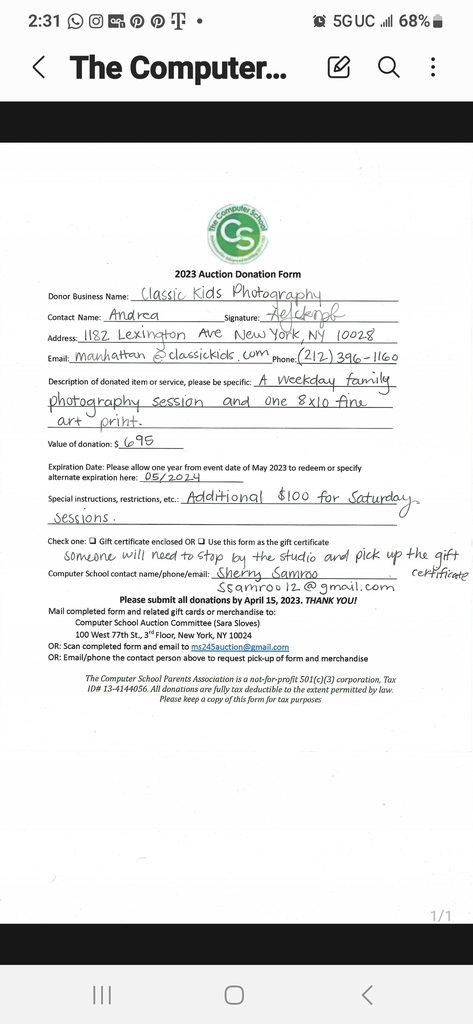 2:31
5G UC 68%
The Computer...
The Computer School
CS
2023 Auction Donation Form
Donor Business Name: Classic Kids Photography
Contact Name: Andrea Signature:
Address: 1182 Lexington Ave New York, NY 10028
Email: manhattan@classickids.com Phone: (212) 396-1160
Description of donated item or service, please be specific: A weekday family
photography session and one 8x10 fine
art print.
Value of donation: $ 695
Expiration Date: Please allow one year from event date of May 2023 to redeem or specify
alternate expiration here: 05/2024
Special instructions, restrictions, etc.: Additional $100 for Saturday
sessions.
Check one: ☐ Gift certificate enclosed OR ☐ Use this form as the gift certificate
someone will need to stop by the studio and pick up the gift
certificate
Computer School contact name/phone/email: Sherry Samroo
Ssamroo12@gmail.com
Please submit all donations by April 15, 2023. THANK YOU!
Mail completed form and related gift cards or merchandise to:
Computer School Auction Committee (Sara Sloves)
100 West 77th St., 3rd Floor, New York, NY 10024
OR: Scan completed form and email to ms245auction@gmail.com
OR: Email/phone the contact person above to request pick-up of form and merchandise
The Computer School Parents Association is a not-for-profit 501(c)(3) corporation, Tax
ID# 13-4144056. All donations are fully tax deductible to the extent permitted by law.
Please keep a copy of this form for tax purposes
1/1